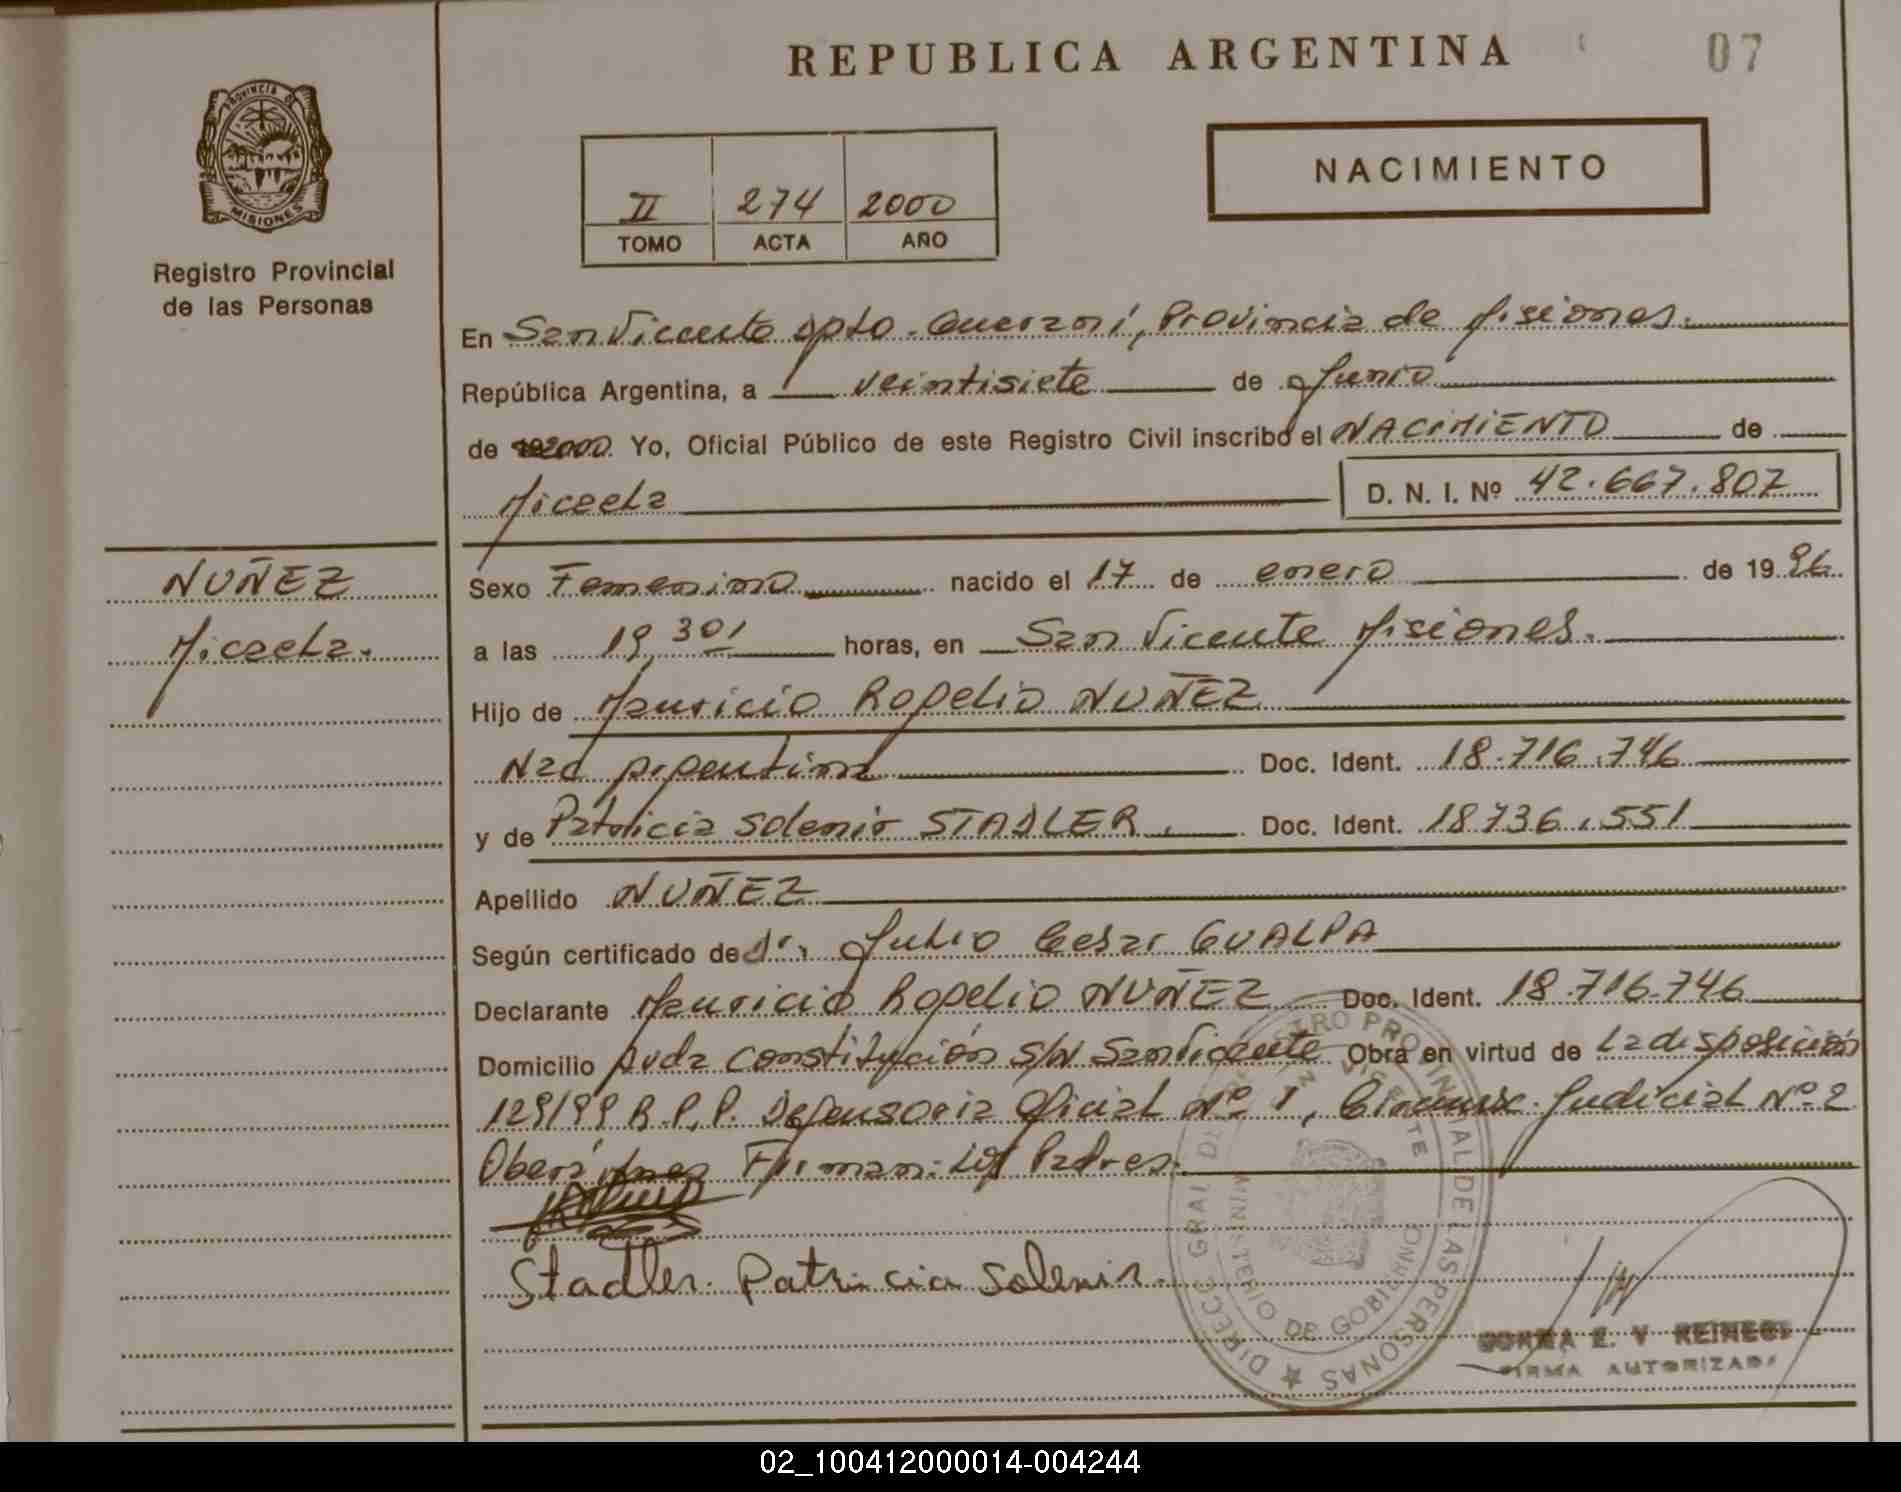 REPUBLICA ARGENTINA
07
PROVINCIA DE
MISIONES
Registro Provincial
de las Personas
II 274 2000
TOMO ACTA AÑO
NACIMIENTO
En San Vicente Dpto. Guaraní, Provincia de Misiones.
República Argentina, a veintisiete de Junio
de 2000 Yo, Oficial Público de este Registro Civil inscribo el NACIMIENTO de
Micaela D. N. I. Nº 42.667.807
NUÑEZ
Micaela.
Sexo Femenino nacido el 17 de enero de 1996
a las 19,301 horas, en San Vicente Misiones.
Hijo de Mauricio Rogelio NUÑEZ
Nac Argentina Doc. Ident. 18.716.746
y de Patricia Solenir STADLER. Doc. Ident. 18736.551
Apellido NUÑEZ
Según certificado de dr. Julio Cesar GUALPA
Declarante Mauricio Rogelio NUÑEZ Doc. Ident. 18.716.746
Domicilio Avda Constitución S/N San Vicente Obra en virtud de La disposición
129/99 R.P.P. Defensoria Oficial Nº 1, Circunsc. Judicial Nº 2
Oberá Firman: Los Padres.
Stadler. Patricia Solenir.
DIRECC. GRAL DEL REGISTRO PROVINCIAL DE LAS PERSONAS
SAN VICENTE
MINISTERIO DE GOBIERNO
E. V. REINECK
FIRMA AUTORIZADA
02_100412000014-004244